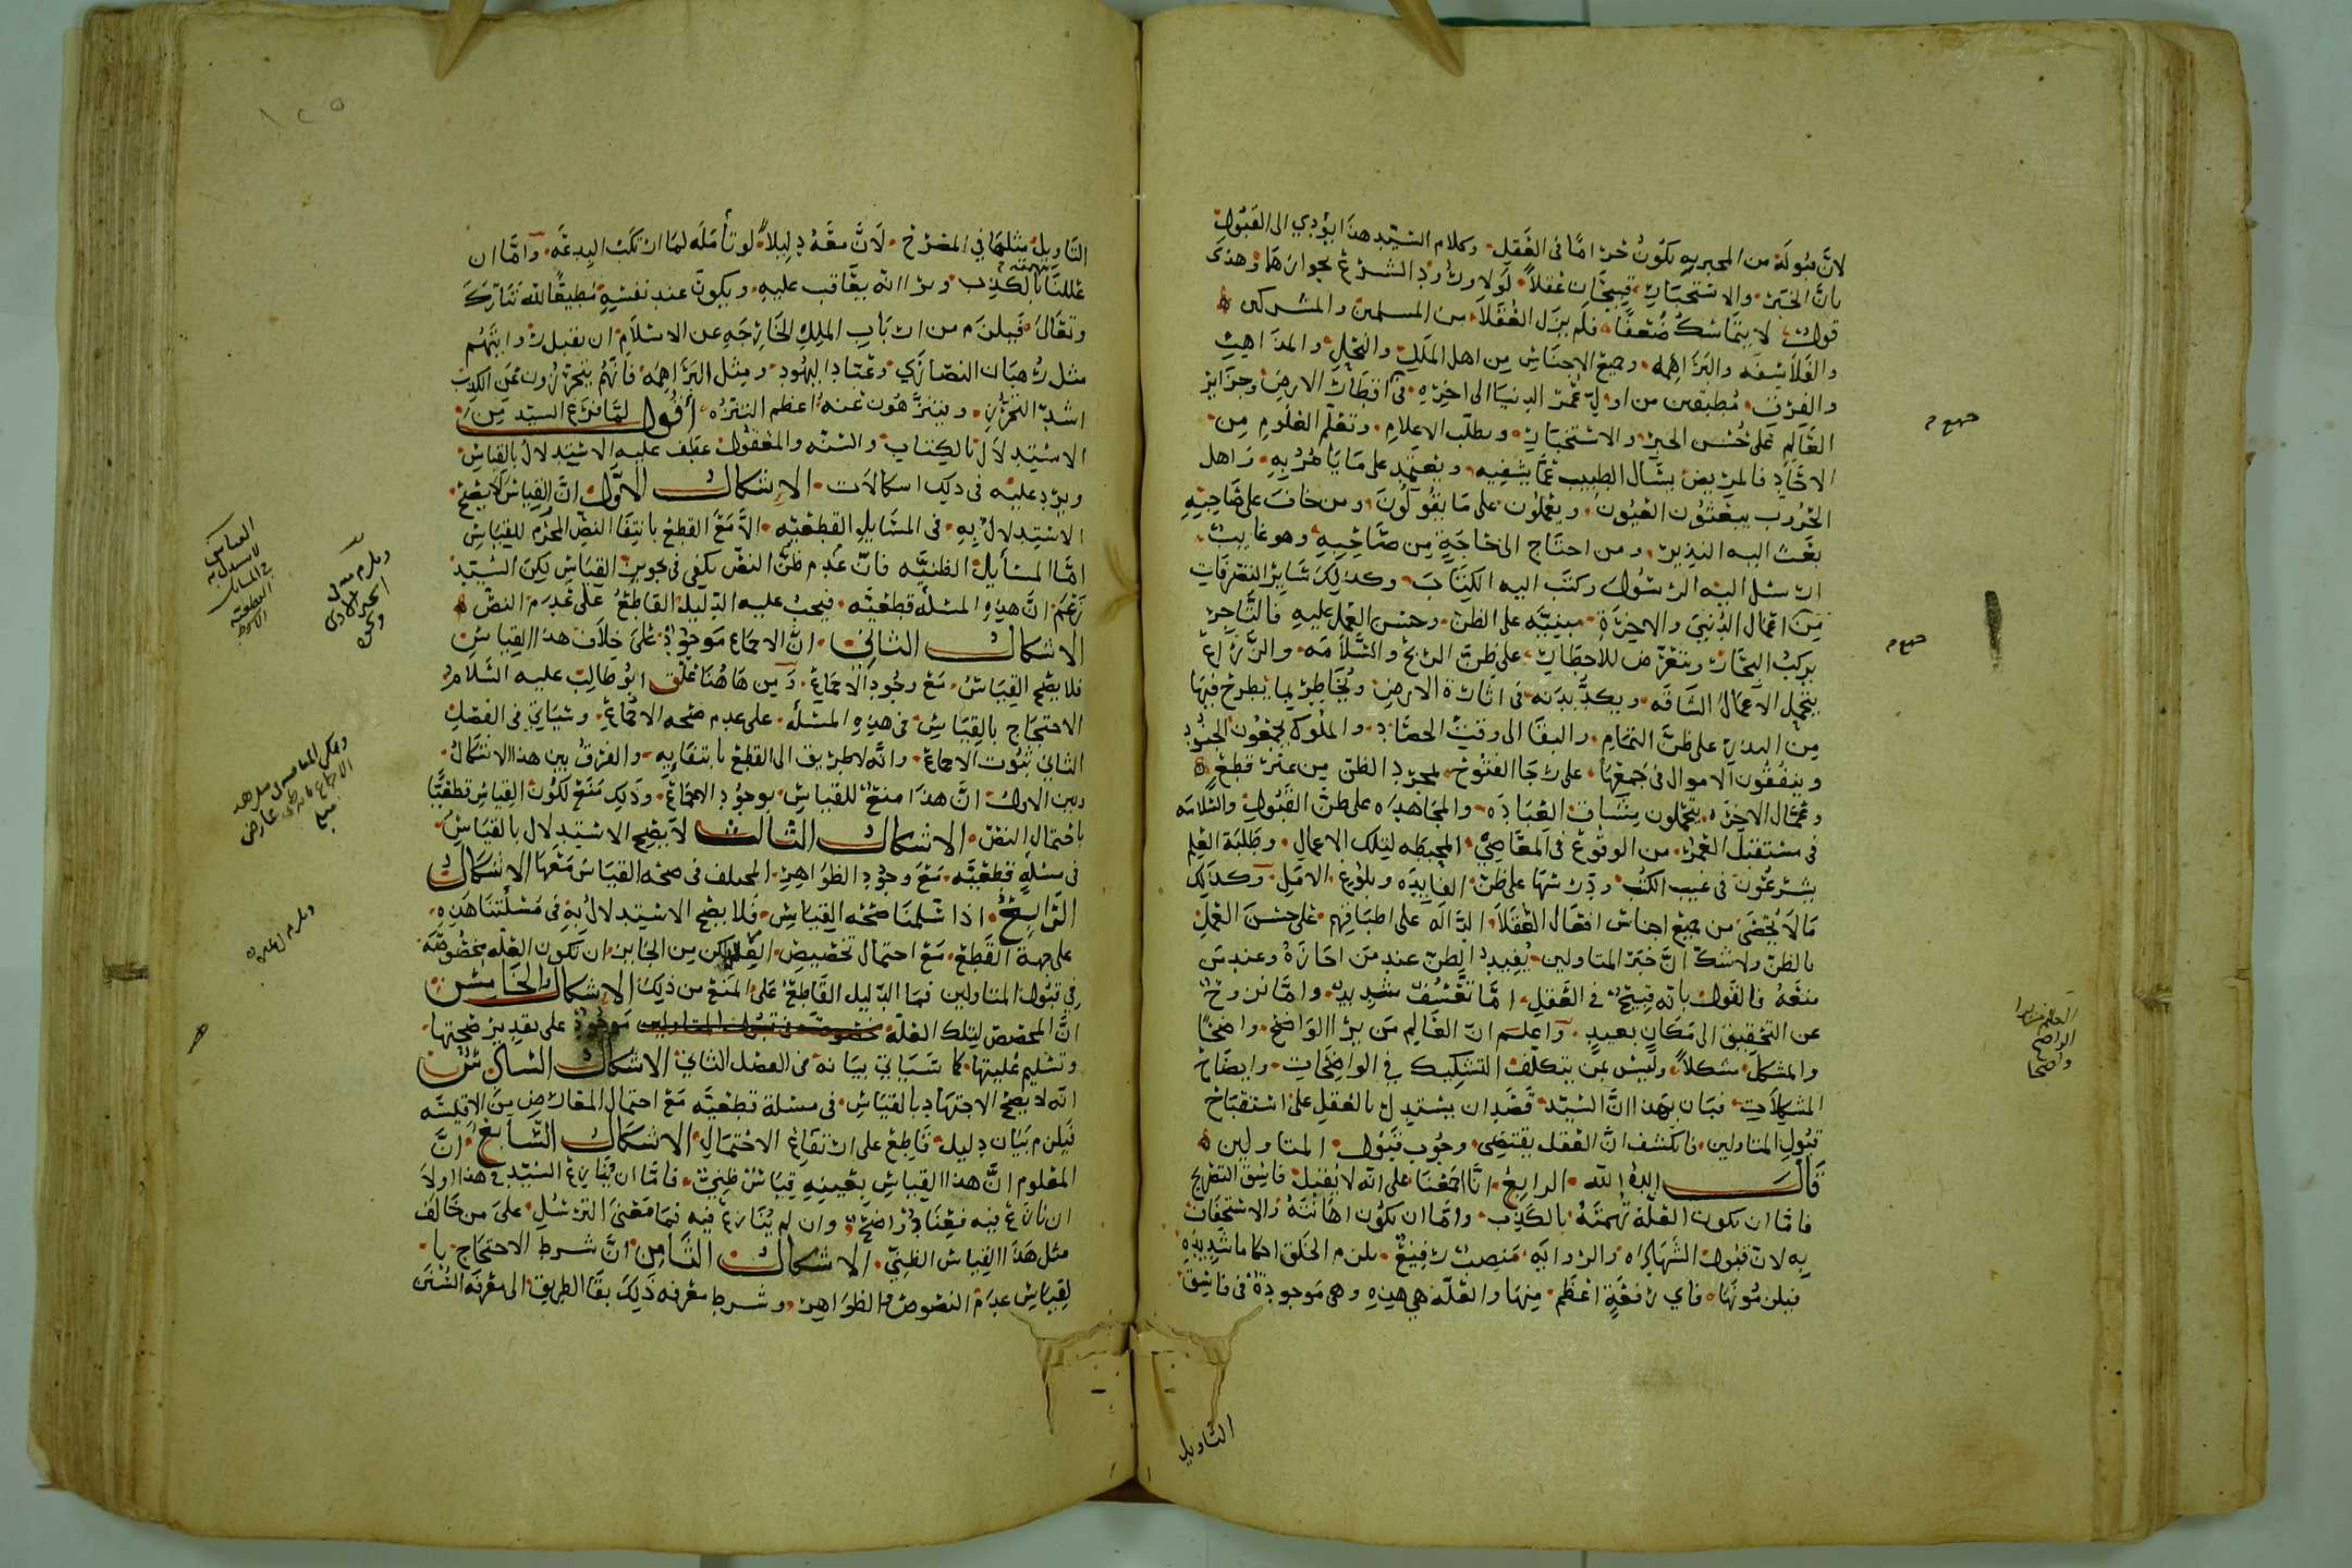 لان قبوله من المخبر به يكون حراما في العقل وكلام السيد هذا يؤدي الى القبول
بان الخبر والاستخبار قبيحان عقلا لولا ورود الشرع بجوازهما وهذى
قول لا يتماسك ضعفا فلم يزل العقلا من المسلمين والمشركين
والفلاسفه والبراهمه وجميع الاجناس من اهل الملل والنحل والمذاهب
والفرق مطبقين من اول عمر الدنيا الى اخره في اقطار الارض وجزاير
العالم على حسن الخبر والاستخبار وطلب الاعلام وتعلم العلوم من
الاحاد فالمريض يسال الطبيب عما يشفيه ويعتمد على ما يامر به واهل
الحروب يبعثون العيون ويعملون على ما يقولون ومن خاف على صاحبه
بعث اليه النذير ومن احتاج الى حاجة من صاحبه وهو غايب
ارسل اليه الرسول وكتب اليه الكتاب وكذلك ساير التصرفات
من اعمال الدنيا والاخرة مبنيه على الظن وحسن العمل عليه فالتاجر
يركب البحار ويتعرض للاخطار على ظن الربح والسلامه والزراع
يتحمل الاعمال الشاقه ويكد بدنه في اثارة الارض ويخاطر بما يطرح فيها
من البذر على ظن التمام والبقا الى وقت الحصاد والملوك يجمعون الجنود
وينفقون الاموال في جمعها على رجا الفتوح لمجرد الظن من غير قطع
وعمال الاخره يتحملون مشاق العباده والمجاهده على ظن القبول والسلامه
في مستقبل العمر من الوقوع في المعاصي المحبطه لتلك الاعمال وطلبة العلم
يشرعون في غيب الكتب ودرسها على ظن الفايده وبلوغ الامل وكذلك
ما لا يحصى من جميع اجناس افعال العقلا الداله على اطباقهم على حسن العمل
بالظن ولا شك ان خبر المتاولين يفيد الظن عند من اجازه وعند من
منعه فالقول بانه قبيح في العقل اما تعسف شديد واما نزوح
عن التحقيق الى مكان بعيد واعلم ان العالم من يرا الواضح واضحا
والمشكل مشكلا وليس من يتكلف التشكيك في الواضحات وايضاح
المشكلات فبان بهذا ان السيد قصد ان يستدل بالعقل على استقباح
قبول المتاولين فانكشف ان العقل يقتضي وجوب قبول المتاولين
قال ايده الله الرابع انا اجمعنا على انه لا يقبل فاسق التصريح
فاما ان يكون العلة تهمته بالكذب واما ان يكون اهانته والاستخفاف
به لان قبول الشهاده والروايه منصب رفيع يلزم الخلق احكاما شديده
فيلزمونها فاي رفعة اعظم منها والعلة هي هذه وهي موجودة في فاسق
التاويل
العالم من يرا
الواضح
واضحا
التاويل مثلها في المصرح لان معه دليلا لو تامله لما ارتكب البدعه واما ان
عللنا بتهمته بالكذب ويرا انه يعاقب عليه ويكون عند نفسه مطيعا لله تبارك
وتعالى فيلزم من ارباب الملل الخارجه عن الاسلام ان يقبل روايتهم
مثل رهبان النصارى وعباد اليهود ومثل البراهمه فانهم يتحرزون عن الكذب
اشد التحرز ويتنزهون عنه اعظم التنزه اقول لما فرغ السيد من
الاستدلال بالكتاب والسنه والمعقول عطف عليه الاستدلال بالقياس
ويرد عليه في ذلك اشكالات الاشكال الاول ان القياس لا يصح
الاستدلال به في المسايل القطعيه الا مع القطع بانتفا النص المحرم للقياس
اما المسايل الظنيه فان عدم ظن النص يكفي في تجويز القياس لكن السيد
زعم ان هذه المسئلة قطعيه فيجب عليه الدليل القاطع على عدم النص
الاشكال الثاني ان الاجماع موجود على خلاف هذا القياس
فلا يصح القياس مع وجود الاجماع ومن هاهنا علق ابو طالب عليه السلام
الاحتجاج بالقياس في هذه المسئلة على عدم صحه الاجماع وسياتي في الفصل
الثاني ثبوت الاجماع وانه لا طريق الى القطع بانتفايه والفرق بين هذا الاشكال
وبين الاول ان هذا منع للقياس بوجود الاجماع وذلك منع لكون القياس قطعيا
باحتمال النص الاشكال الثالث لا يصح الاستدلال بالقياس
في مسئله قطعيه مع وجود الظواهر المختلف في صحه القياس معها الاشكال
الرابع اذا سلمنا صحه القياس فلا يصح الاستدلال به في مسئلتنا هذه
على جهة القطع مع احتمال تخصيص العلة لكن من الجايز ان تكون العله مخصوصه
في قبول المتاولين فما الدليل القاطع على المنع من ذلك الاشكال الخامس
ان المخصص لتلك العلة موجود على تقدير صحتها
وتسليم عليتها كما سياتي بيانه في الفصل الثاني الاشكال السادس
انه لا يصح الاجتهاد بالقياس في مسئلة قطعيه مع احتمال المعارض من الاقيسه
فيلزم بيان دليل قاطع على ارتفاع الاحتمال الاشكال السابع ان
المعلوم ان هذا القياس بعينه قياس ظني فاما ان ينازع السيد في هذا اولا
ان نازع فيه فعناد واضح وان لم ينازع فيه فما معنى الترسل على من خالف
مثل هذا القياس الظني الاشكال الثامن ان شرط الاحتجاج با
لقياس عدم النصوص والظواهر وشرط معرفه ذلك بقا الطريق الى معرفة السنن